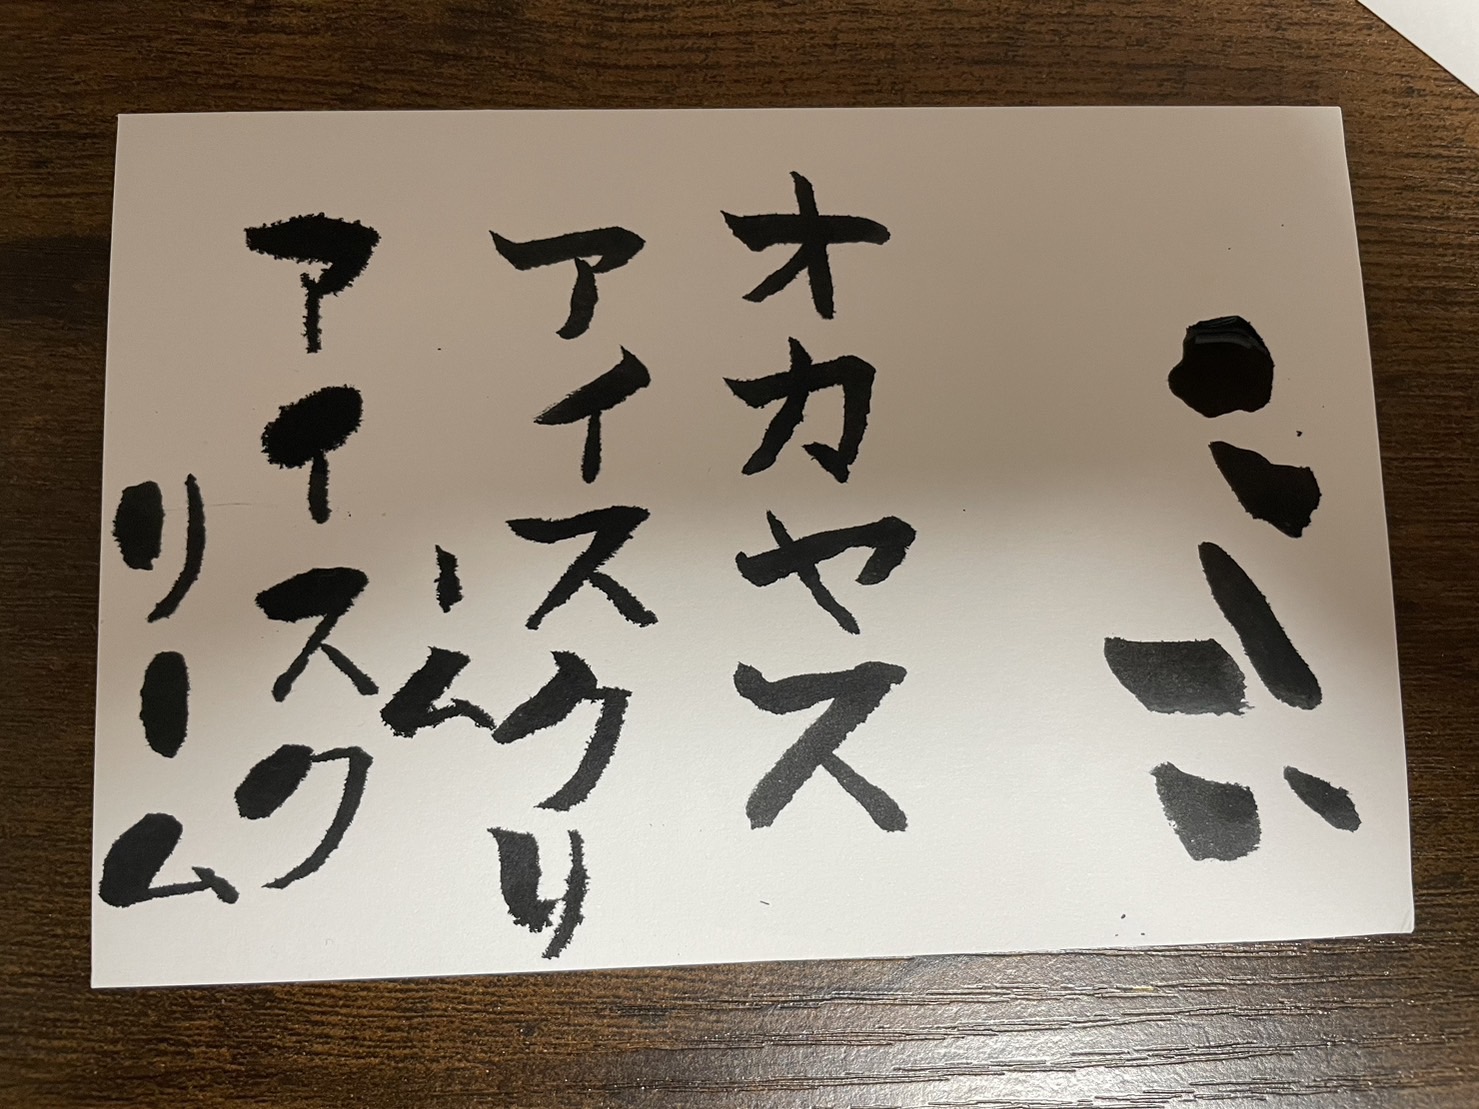 オカヤス
アイスクリーム
アイスクリーム